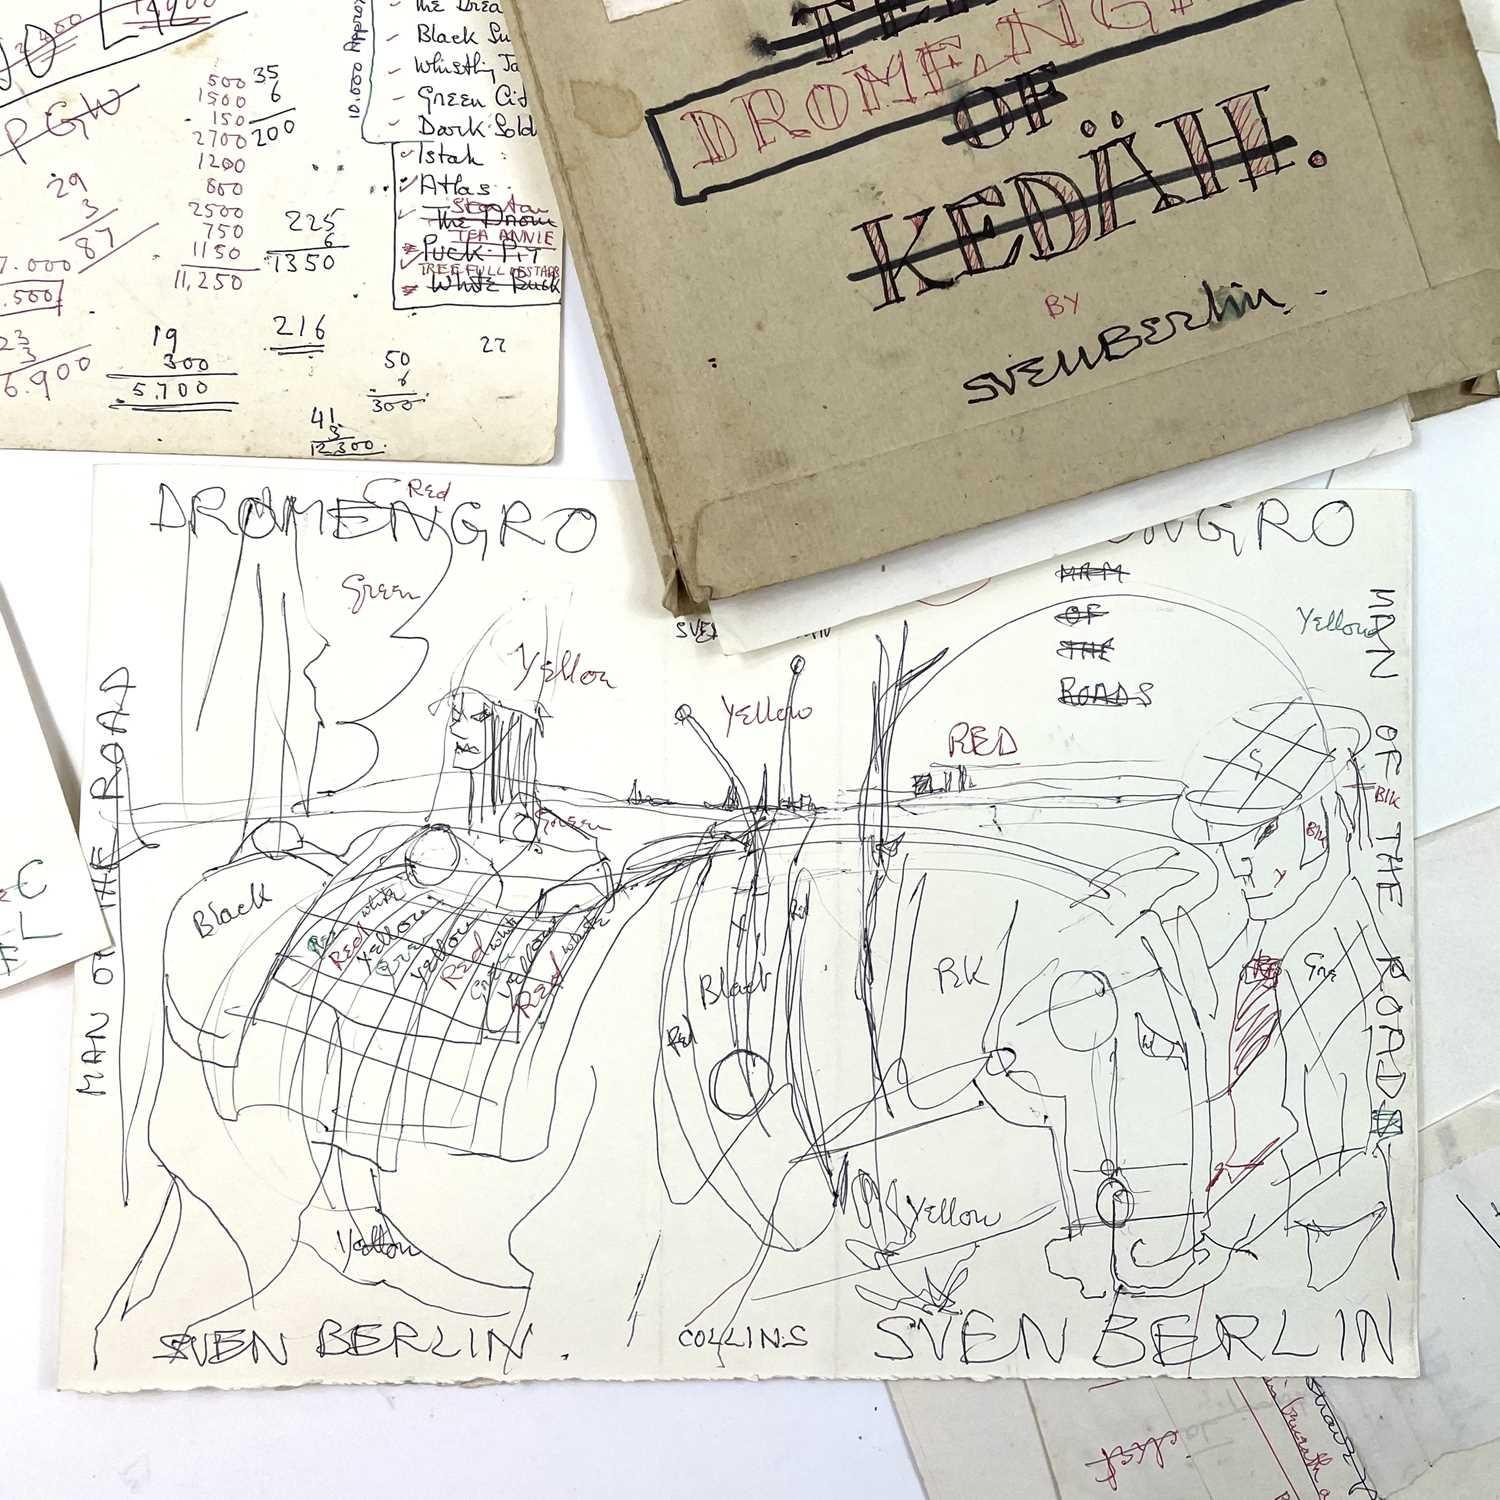 P G W
500
1500
150
2700
1200
800
2500
750
1150
11,250
35
6
200
29
3
87
225
6
1350
7.000
.500
23
3
6.900
19
300
5,700
216
50
6
300
22
41
3
12,300
10.020 Approx
Black Su
Whistling Ja
Green Cit
Dark Sold
Istah
Atlas
The Drom
TEA ANNIE
Puck Pit
TREE FULL OF STARS
White Buck
DROMENG
OF
KEDÄH.
BY
SVEN BERLIN.
DROMENGRO
Red
Green
Yellow
MAN OF THE ROAD
SVEN
Yellow
NGRO
MAN
OF
THE
ROADS
Yellow
MAN OF THE ROADS
RED
Blk
Blk
Green
Black
Red white
Yellow
Green
Yellow
Red white
Green
Yellow
Red white
Black
Red
Red
BK
Red
Gre
Yellow
Yellow
SVEN BERLIN.
COLLINS
SVEN BERLIN